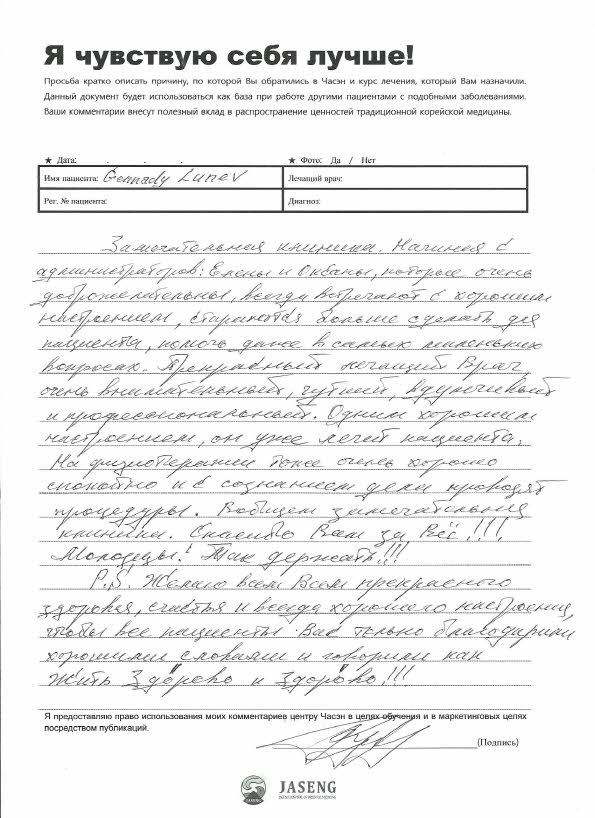 Я чувствую себя лучше!
Просьба кратко описать причину, по которой Вы обратились в Часэн и курс лечения, который Вам назначили.
Данный документ будет использоваться как база при работе другими пациентами с подобными заболеваниями.
Ваши комментарии внесут полезный вклад в распространение ценностей традиционной корейской медицины.
★ Дата: . . . ★ Фото: Да / Нет
Имя пациента: Gennady Lunev Лечащий врач:
Рег. № пациента: Диагноз:
Замечательная клиника. Начиная с
администраторов: Елены и Оксаны, которые очень
доброжелательны, всегда встречают с хорошим
настроением, стараются больше сделать для
пациента, помочь даже в самых маленьких
вопросах. Прекрасный лечащий Врач,
очень внимательный, чуткий, вдумчивый
и профессиональный. Одним хорошим
настроением, он уже лечит пациента.
На физиотерапии тоже очень хорошо
спокойно и с сознанием дела проводят
процедуры. Вобщем замечательная
клиника. Спасибо Вам за Всё!!!
Молодцы! Так держать!!!
P.S. Желаю всем Вам прекрасного
здоровья, счастья и всегда хорошего настроения,
чтобы все пациенты Вас только благодарили
хорошими словами и говорили как
жить Здорово и Здорово!!!
Я предоставляю право использования моих комментариев центру Часэн в целях обучения и в маркетинговых целях
посредством публикаций.
(Подпись)
JASENG